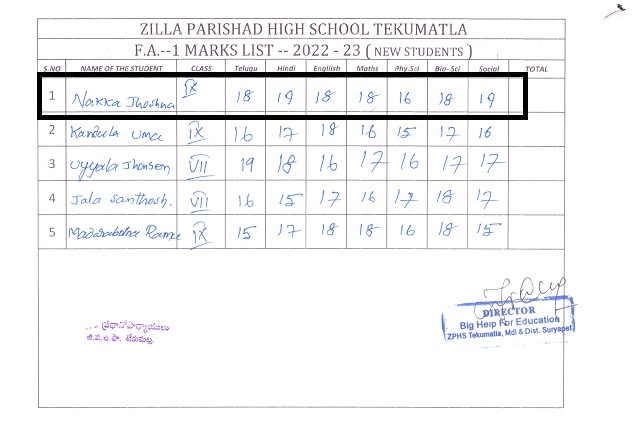 ZILLA PARISHAD HIGH SCHOOL TEKUMATLA
F.A.--1 MARKS LIST -- 2022 - 23 ( NEW STUDENTS )
S.NO NAME OF THE STUDENT CLASS Telugu Hindi English Maths Phy.Sci Bio- Sci Social TOTAL
1 Nakka Jhoshna IX 18 19 18 18 16 18 19
2 Kandula Uma IX 16 17 18 16 15 17 16
3 Uyyala Jhonsen VII 19 18 16 17 16 17 17
4 Jala Santhosh. VII 16 15 17 16 17 18 17
5 IX 15 17 18 18 16 18 15
DIRECTOR
Big Help For Education
ZPHS Tekumatla, Mdl & Dist. Suryapet
ప్రధానోపాధ్యాయులు
జి.ప.ఉ.పా. టేకుమట్ల